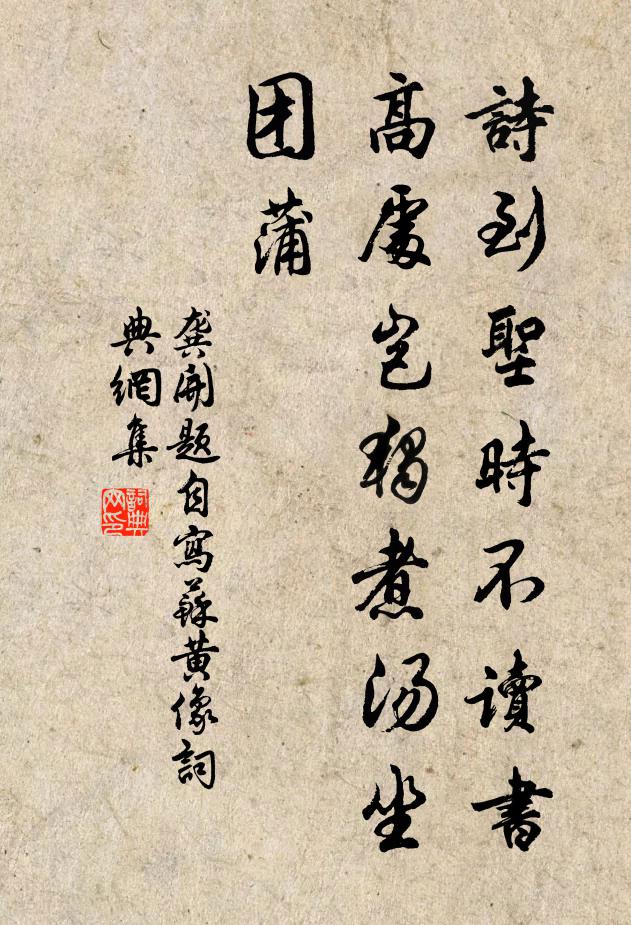 詩到聖時不讀書
高處豈獨煮湯坐
团蒲
龔開題自寫蘇黃像詞
典網集
詞典
网印